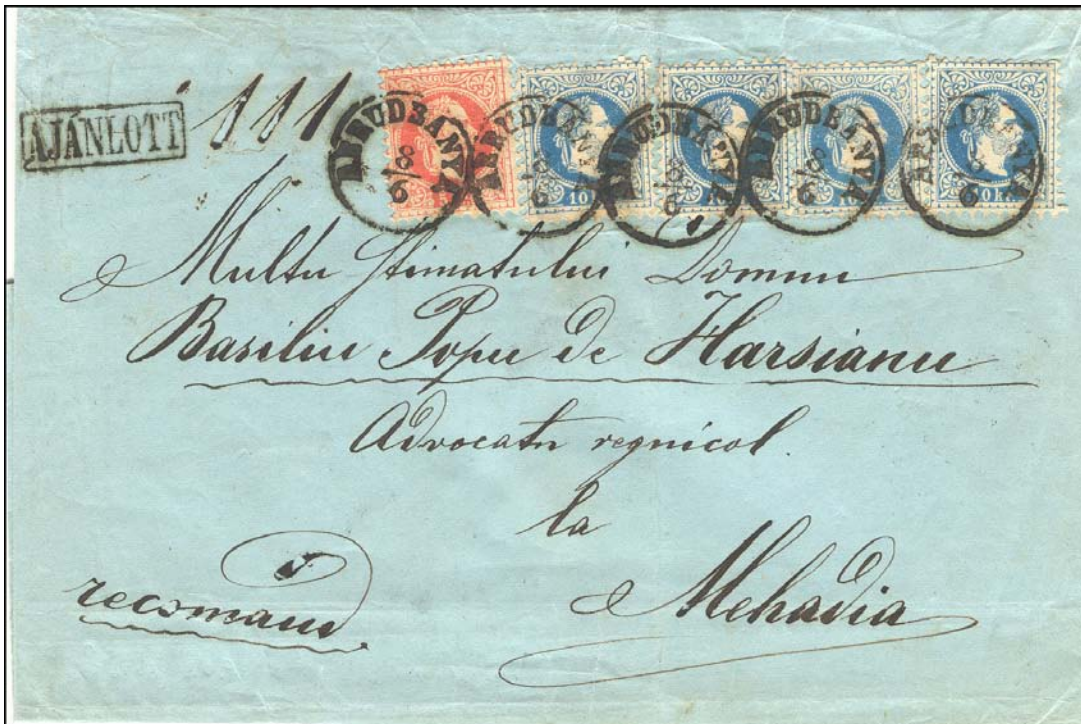 AJÁNLOTT 111
ABRUDBÁNYA 8/6 ABRUDBÁNYA 8/6 ABRUDBÁNYA 8/6 ABRUDBÁNYA 8/6 ABRUDBÁNYA 8/6
10 10
Multu stimatului Domnu
Basiliu Popu de Harsianu
Advocatu regnicol
la
Mehadia
recomand.